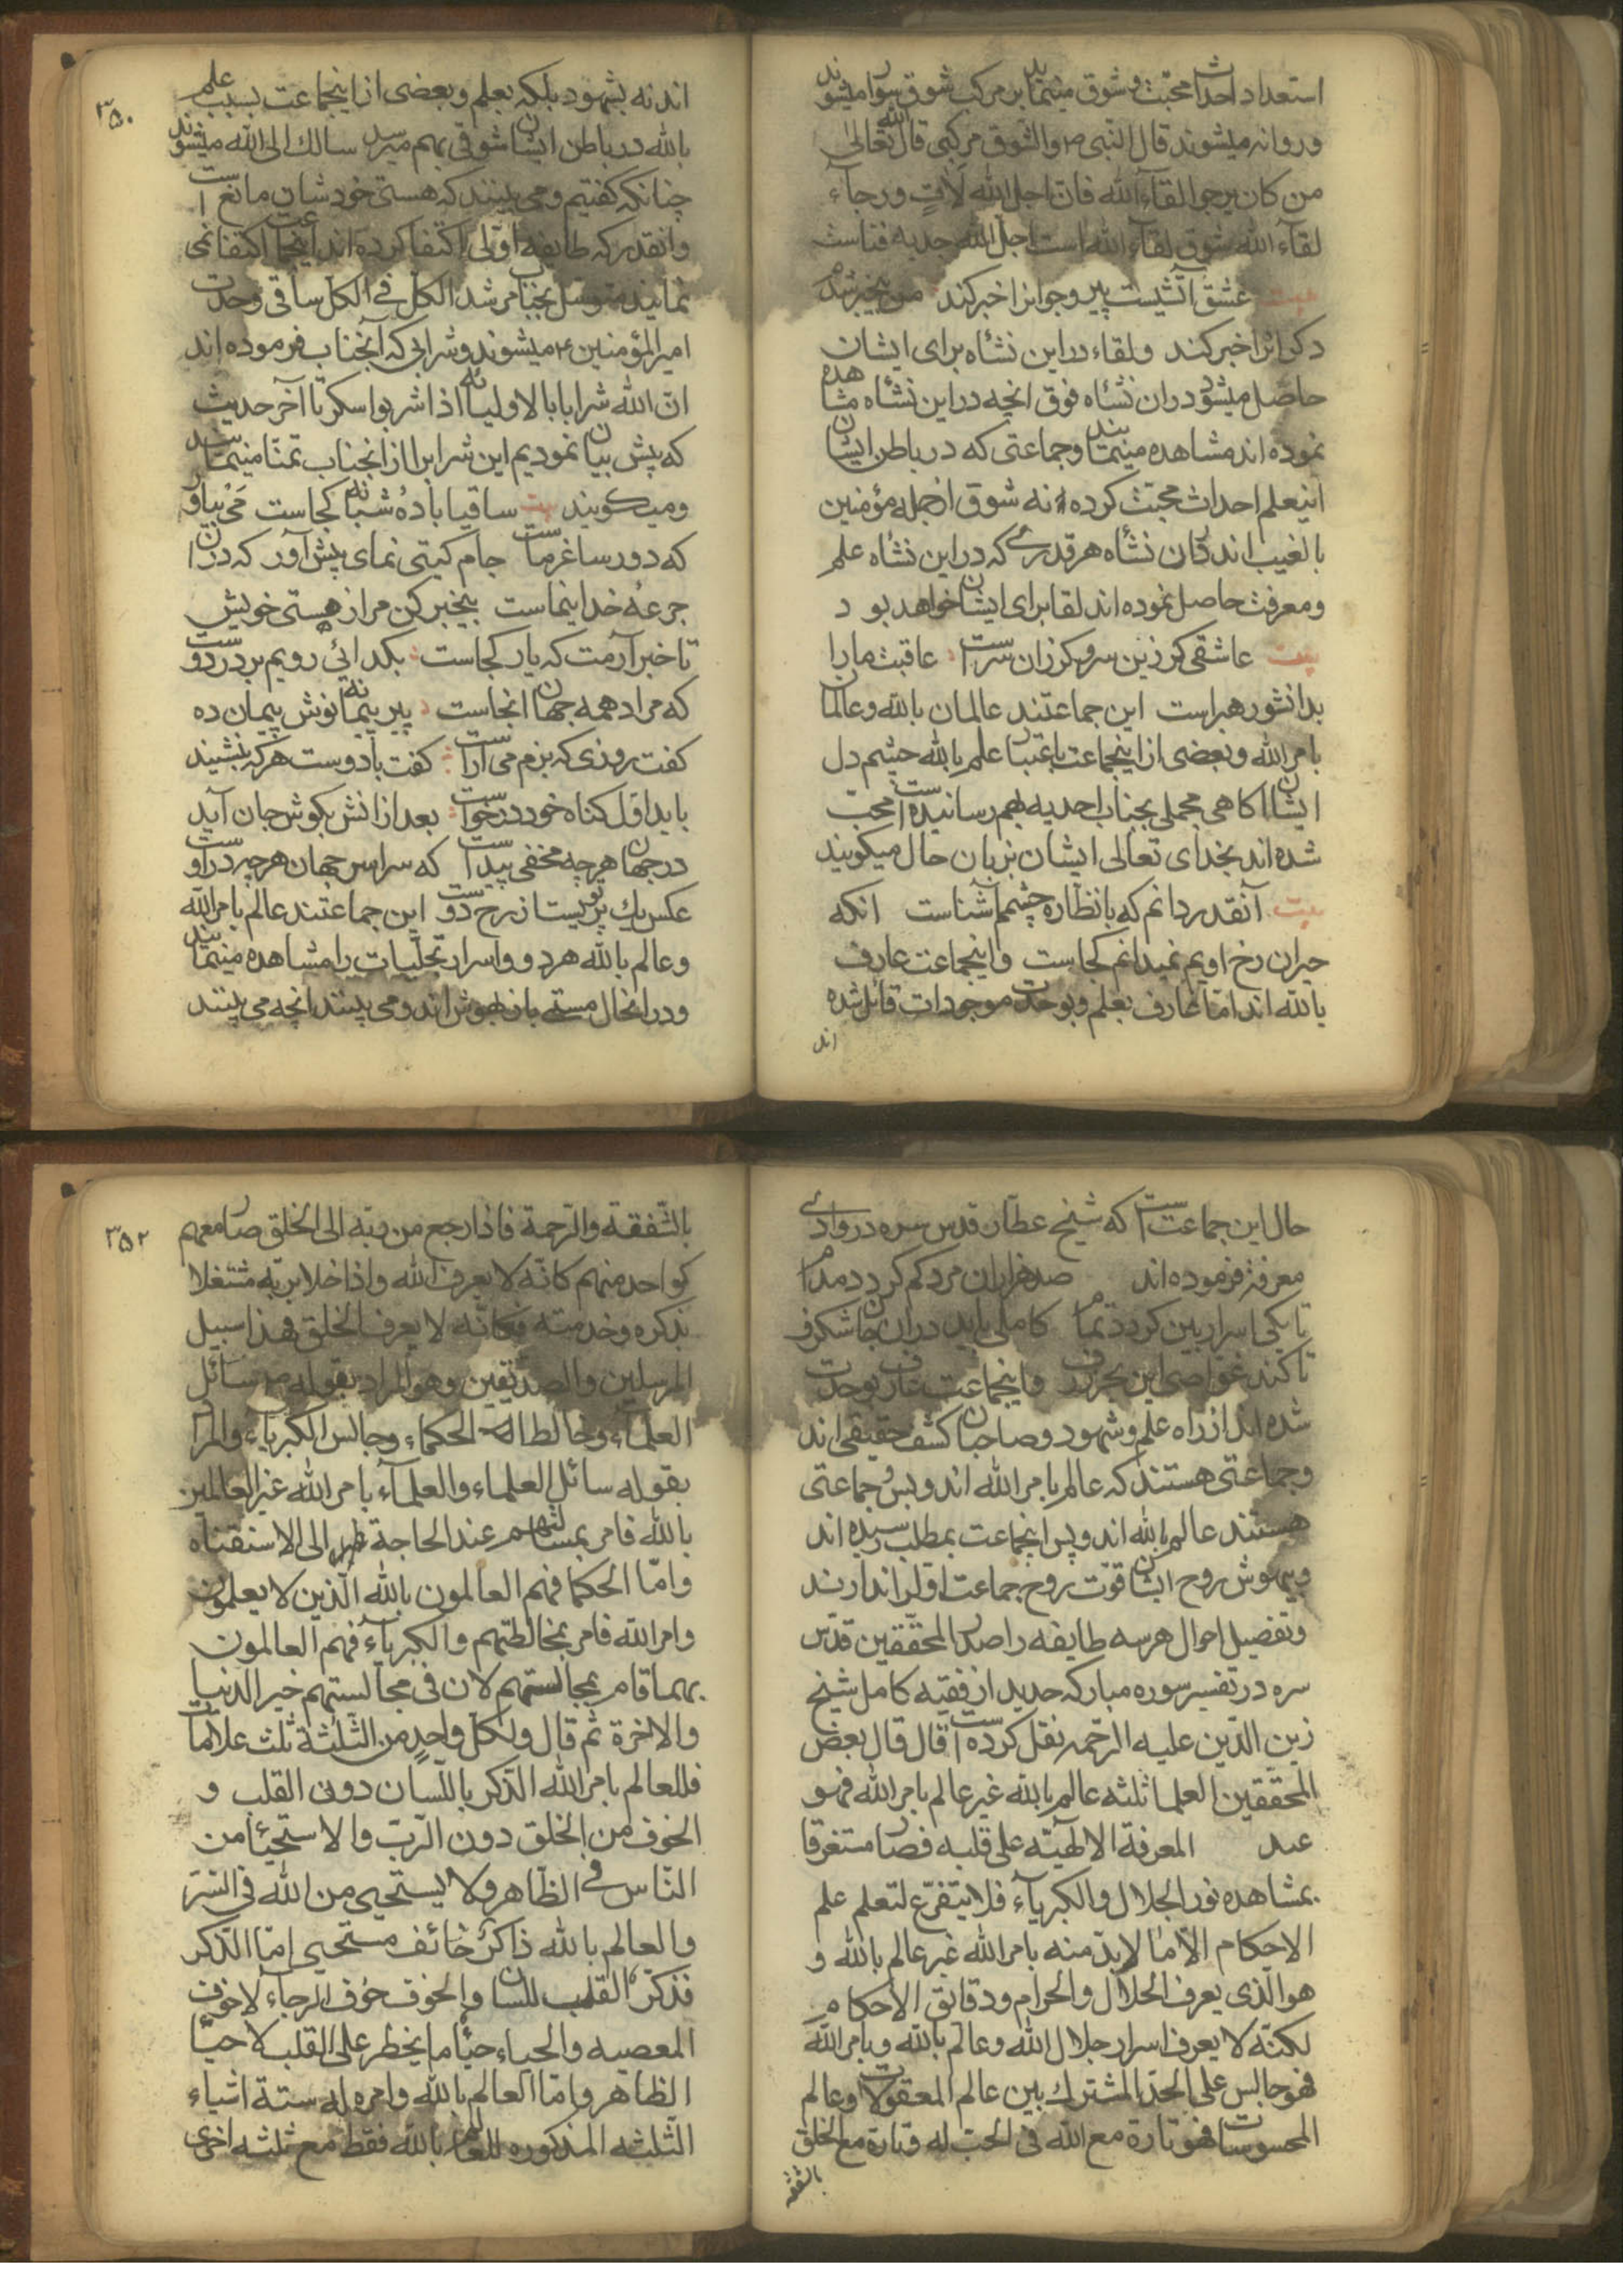 استعداد احداث محبت و شوق مینماید بر مرکب شوق سوار میشوند
و روانه میشوند قال النبی ص والشوق مرکبی قال الله تعالی
من کان یرجوا لقاء الله فان اجل الله لات و رجاء
لقاء الله شوق لقاء الله است اجل الله جذبه فناست
بیت عشق آتشیست پیر و جوانرا خبر کند من بیخبر شدم
دکرانرا خبر کنند و لقاء در این نشاه برای ایشان
حاصل میشود در ان نشاه فوق انچه در این نشاه مشاهده
نموده اند مشاهده مینمایند و جماعتی که در باطن ایشان
اینعلم احداث محبت کرده نه شوق از جمله مؤمنین
بالغیب اند در ان نشاه هر قدری که در این نشاه علم
و معرفت حاصل نموده اند لقا برای ایشان خواهد بود
بیت عاشقی کر زین سر و کر زان سر است عاقبت ما را
بدانشو رهبر است این جماعتند عالمان بالله و عالمان
بامر الله و بعضی از اینجماعت باعتبار علم بالله چشم دل
ایشان اکاهی مجملی بجناب احدیه بهم رسانیده است محب
شده اند بخدای تعالی ایشان بزبان حال میکویند
بیت آنقدر دانم که با نظاره چشمم آشناست انکه
حیران رخ اویم نمیدانم کجاست و اینجماعت عارف
بالله اند اما عارف بعلم و بوحدت موجودات قائل شده
اند
۳۵۰
اند نه بشهود بلکه بعلم و بعضی از اینجماعت بسبب علم
بالله در باطن ایشان شوقی بهم میرسد سالک الی الله میشوند
چنانکه کفتیم و می بینند که هستی خودشان مانع است
وانقدر که طایفه اولی اکتفا کرده اند اینجماعت اکتفا نمی
نمایند متوسل بجناب مرشد الکل فی الکل ساقی وحدت
امیر المؤمنین ع میشوند و شرابی که آنجناب فرموده اند
ان الله شرابا بالاولیائه اذا شربوا سکروا تا آخر حدیث
که پیش بیان نمودیم این شرابرا از انجناب تمنا مینمایند
و میکویند بیت ساقیا بادهٔ شبانه کجاست می بیاور
که دور ساغر ماست جام کیتی نمای پیش آور که در ان
جرعهٔ خدا نماست بیخبر کن مرا ز هستی خویش
تا خبر آرمت که یار کجاست بکدائی رویم بر در دوست
که مراد همه جهان انجاست پیر پیمانه نوش پیمان ده
کفت روزی که بزم می آراست کفت با دوست هر که بنشیند
باید اول کناه خود در خواست بعد از انش بکوش جان آید
در جهان هر چه مخفی پیداست که سراسر جهان هر چه در اوست
عکس یک پرتویست از رخ دوست این جماعتند عالم بامر الله
و عالم بالله هر دو و اسرار تجلیات را مشاهده مینمایند
و در انحال مستی باز بهوش اند و می بینند انچه می بینند
حال این جماعت است که شیخ عطار قدس سره در وادی
معرفة فرموده اند صد هزاران مرد کم کردد مدام
تا یکی اسرار بین کردد تمام کاملی باید در ان جان شکرف
تا کند غواصی این بحر ژرف و اینجماعت عارف بوحدت
شده اند از راه علم و شهود و صاحبان کشف حقیقی اند
و جماعتی هستند که عالم بامر الله اند و بس و جماعتی
هستند عالم بالله اند و پس اینجماعت بمطلب رسیده اند
و بیهوش روح ایشان قوت روح جماعت اولرا ندارند
و تفصیل احوال هر سه طایفه را صدر المحققین قدس
سره در تفسیر سوره مبارکه حدید از فقیه کامل شیخ
زین الدین علیه الرحمه نقل کرده است قال قال بعض
المحققین العلما ثلثه عالم بالله غیر عالم بامر الله فهو
عبد المعرفة الالهیه علی قلبه فصار مستغرقا
بمشاهده نور الجلال والکبریاء فلا یتفرغ لتعلم علم
الاحکام الا ما لابد منه بامر الله غیر عالم بالله و
هو الذی یعرف الحلال والحرام ودقایق الاحکام
لکنه لا یعرف اسرار جلال الله وعالم بالله وبامر الله
فهو جالس علی الحد المشترک بین عالم المعقولات وعالم
المحسوسات فهو تارة مع الله فی الحب له وتارة مع الخلق
بالشفقه
۳۵۲
بالشفقه والرحمة فاذا رجع من ربه الی الخلق صار معهم
کواحد منهم کانه لا یعرف الله واذا خلا بربه مشتغلا
بذکره وخدمته فکانه لا یعرف الخلق فهذا سبیل
المرسلین والصدیقین وهو المراد بقوله ص سائل
العلماء وخالط الحکماء وجالس الکبریاء والمراد
بقوله سائل العلماء والعلماء بامر الله غیر العالمین
بالله فامر بمسائلتهم عند الحاجة الی الاستفتاه
واما الحکما فهم العالمون بالله الذین لا یعلمون
وامر الله فامر بمخالطتهم والکبرآء فهم العالمون
بهما فامر بمجالستهم لان فی مجالستهم خیر الدنیا
والاخرة ثم قال ولکل واحد من الثلثة ثلث علامات
فللعالم بامر الله الذکر باللسان دون القلب و
الخوف من الخلق دون الرب والاستحیاء من
الناس فی الظاهر ولا یستحیی من الله فی السر
والعالم بالله ذاکر خائف مستحیی اما الذکر
فذکر القلب للسان والخوف خوف الرجاء لا خوف
المعصیه والحیاء حیاء ما یخطر علی القلب لا حیاء
الظاهر واما العالم بالله وامره له ستة اشیاء
الثلثه المذکوره للعالم بالله فقط مع ثلثه اخری